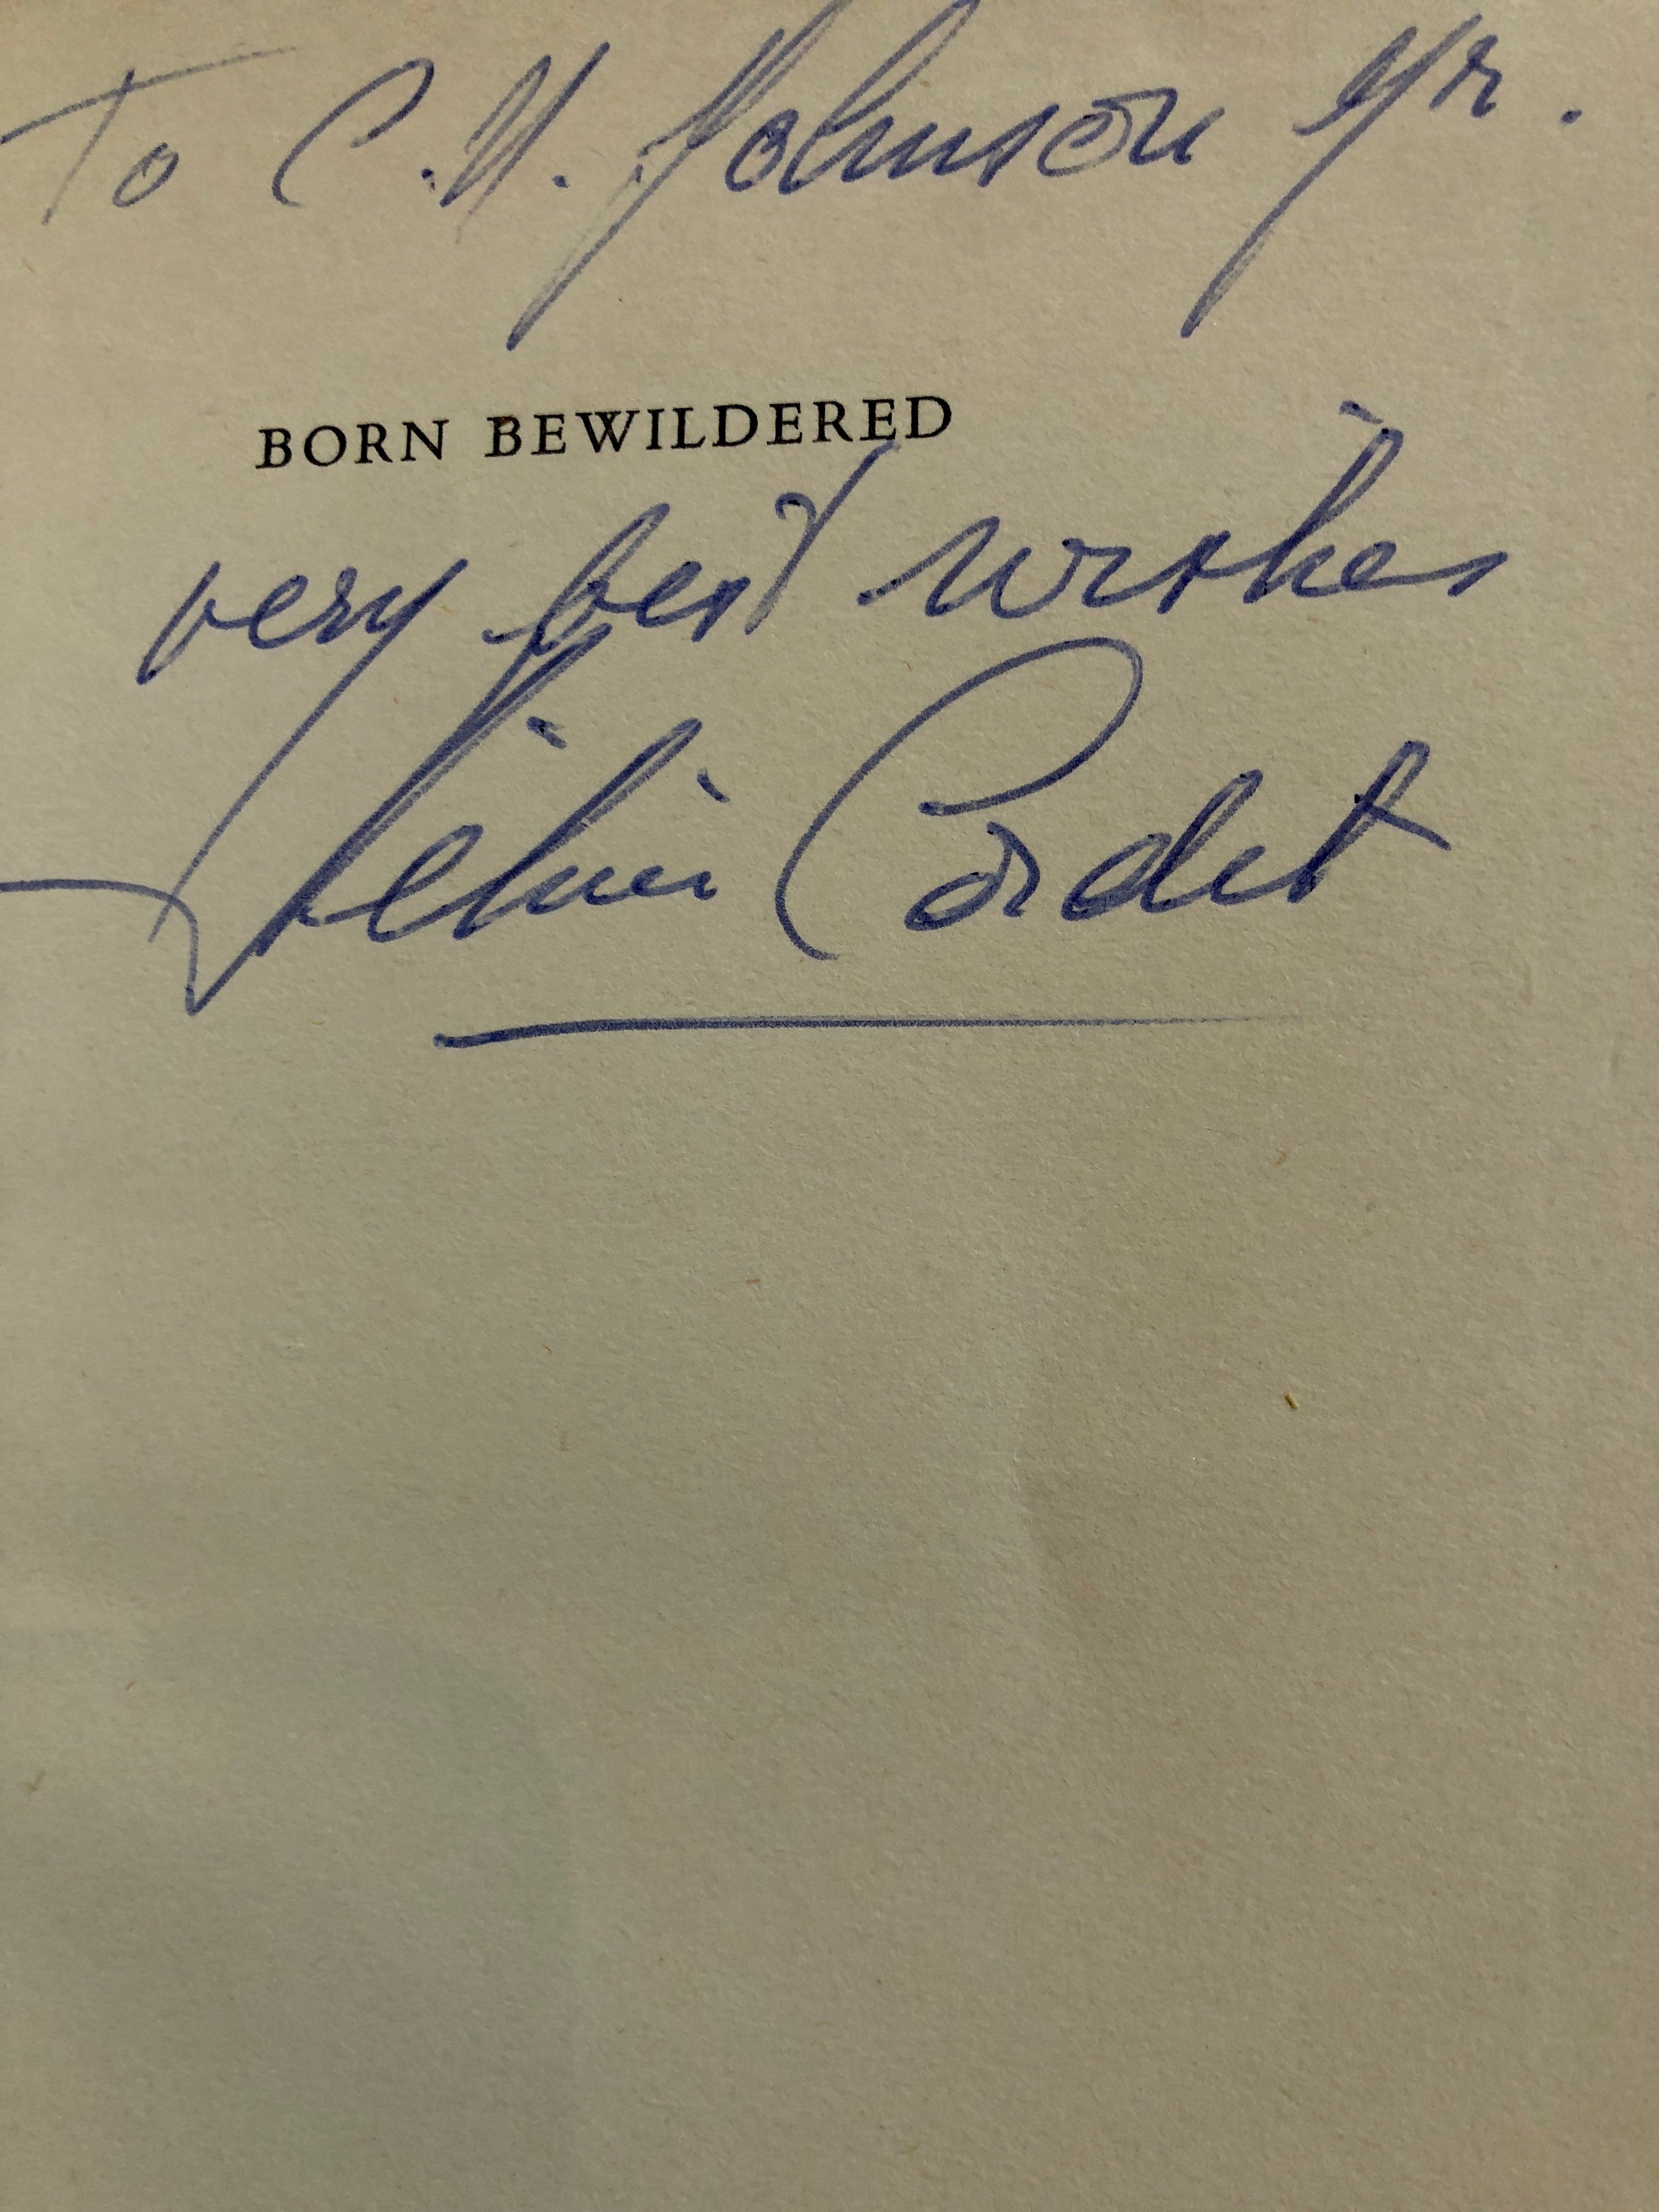 To C.H. Johnson Jr.
BORN BEWILDERED
very best wishes
Hélène Cordet